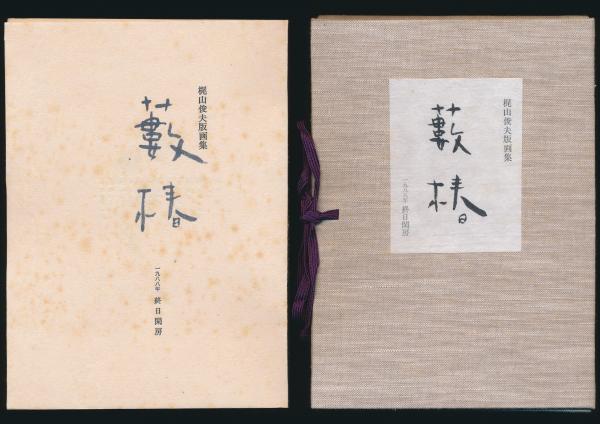 梶山俊夫版画集
藪椿
一九八八年 終日閑房
梶山俊夫版画集
藪椿
一九八八年 終日閑房